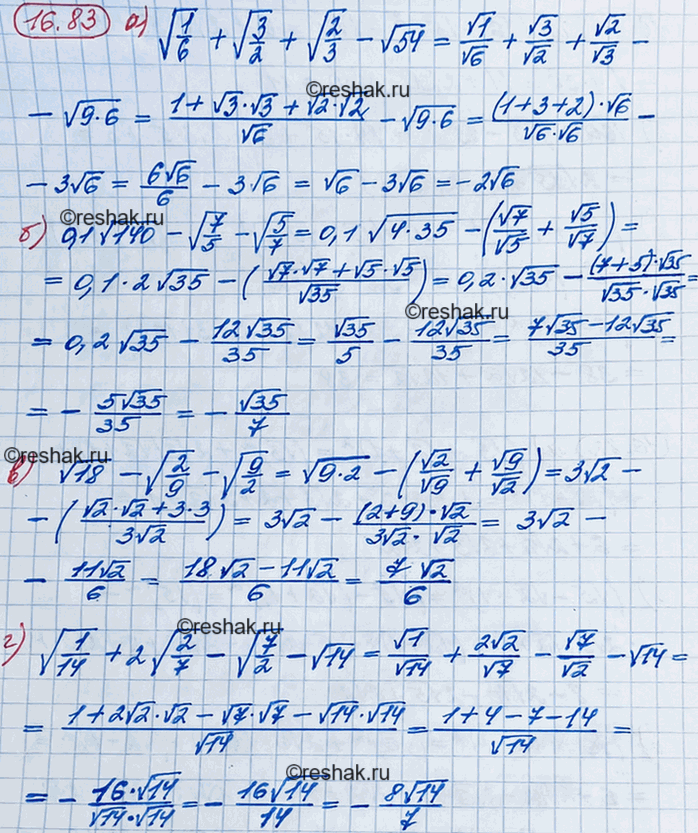 16.83 а) √(1/6) + √(3/2) + √(2/3) − √54 = √1/√6 + √3/√2 + √2/√3 −
©reshak.ru
− √(9·6) = (1 + √3·√3 + √2·√2)/√6 − √(9·6) = ((1+3+2)·√6)/(√6·√6) −
− 3√6 = 6√6/6 − 3√6 = √6 − 3√6 = −2√6
©reshak.ru
б) 0,1√140 − √(7/5) − √(5/7) = 0,1√(4·35) − (√7/√5 + √5/√7) =
= 0,1·2√35 − ((√7·√7 + √5·√5)/√35) = 0,2·√35 − ((7+5)·√35)/(√35·√35) =
©reshak.ru
= 0,2√35 − 12√35/35 = √35/5 − 12√35/35 = (7√35 − 12√35)/35 =
= − 5√35/35 = − √35/7
©reshak.ru
в) √18 − √(2/9) − √(9/2) = √(9·2) − (√2/√9 + √9/√2) = 3√2 −
− ((√2·√2 + 3·3)/(3√2)) = 3√2 − ((2+9)·√2)/(3√2·√2) = 3√2 −
− 11√2/6 = (18√2 − 11√2)/6 = 7√2/6
©reshak.ru
г) √(1/14) + 2√(2/7) − √(7/2) − √14 = √1/√14 + 2√2/√7 − √7/√2 − √14 =
= (1 + 2√2·√2 − √7·√7 − √14·√14)/√14 = (1 + 4 − 7 − 14)/√14 =
©reshak.ru
= − (16·√14)/(√14·√14) = − 16√14/14 = − 8√14/7